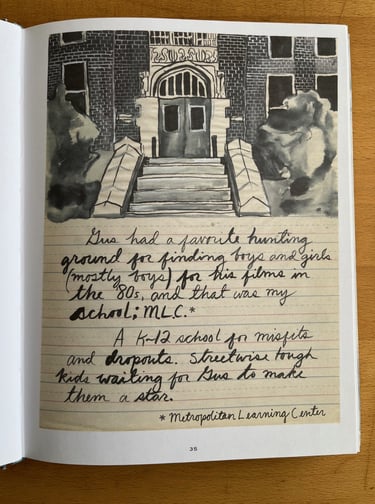 Gus had a favorite hunting
ground for finding boys and girls
(mostly boys) for his films in
the '80s, and that was my
school; MLC.*
A K-12 school for misfits
and dropouts. Streetwise tough
kids waiting for Gus to make
them a star.
* Metropolitan Learning Center
35